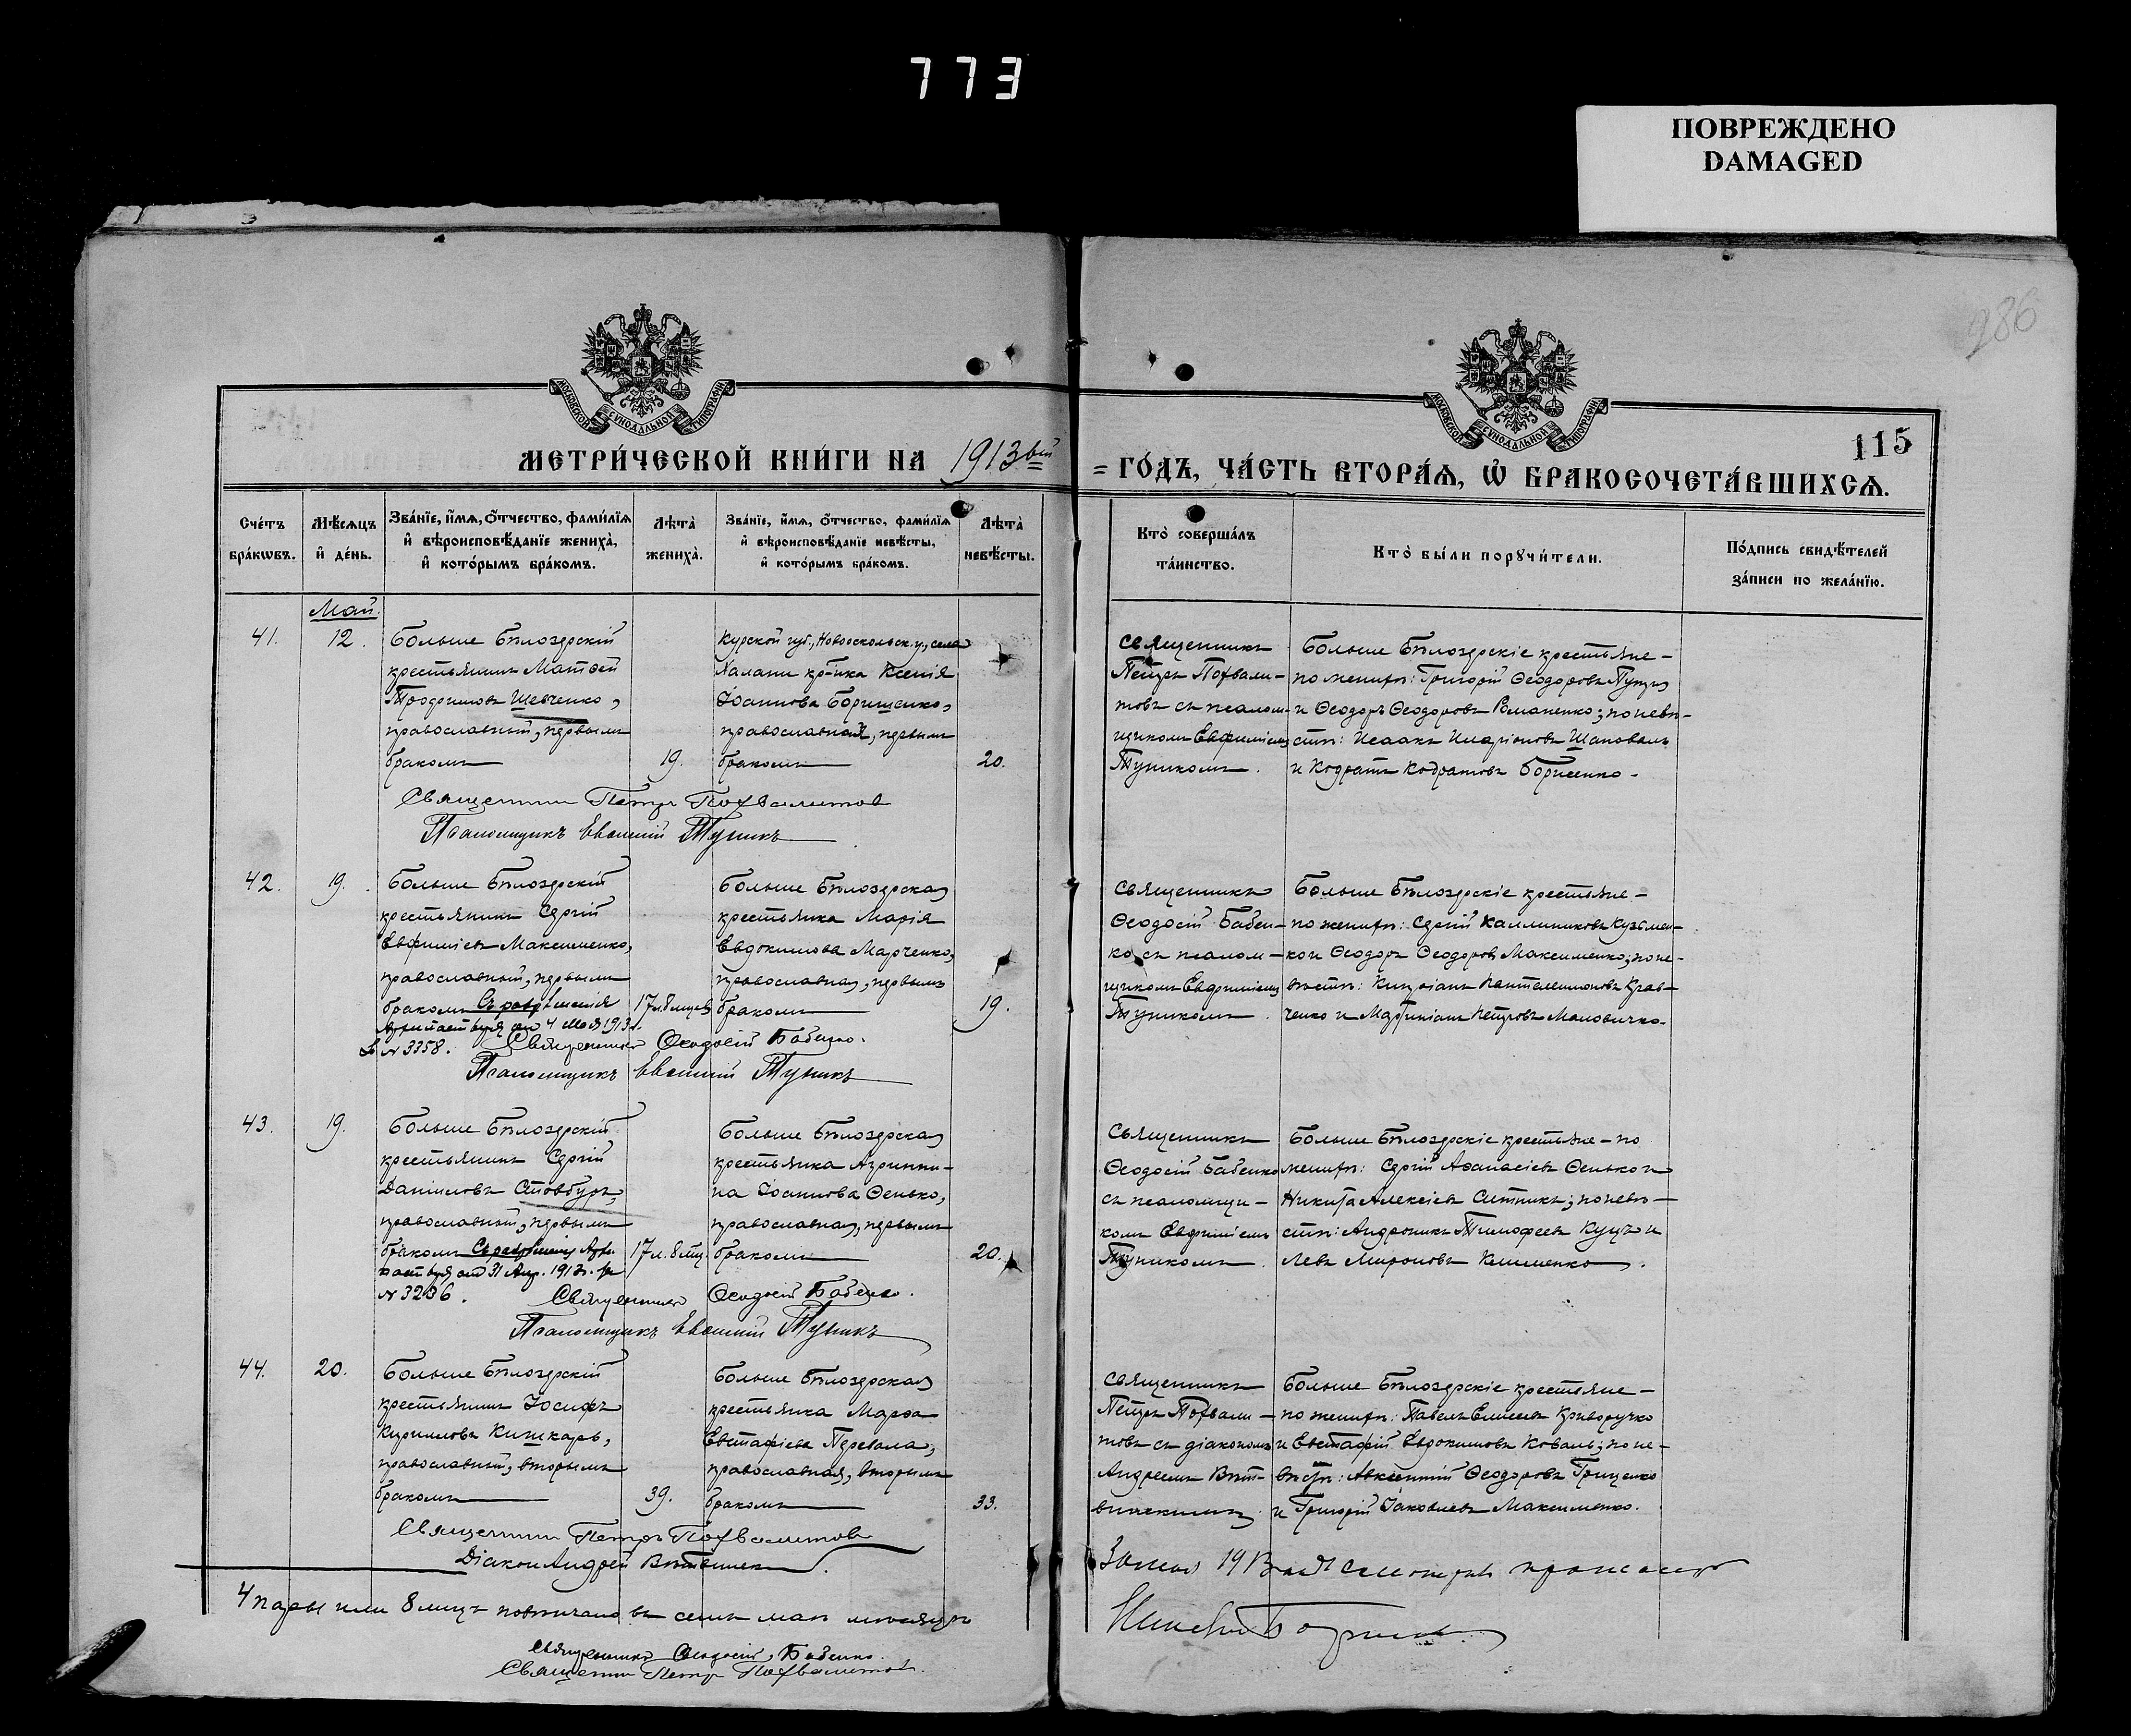 773
ПОВРЕЖДЕНО
DAMAGED
286
115
МОСКОВСКОЙ СѴНОДАЛЬНОЙ ТИПОГРАФІИ
МОСКОВСКОЙ СѴНОДАЛЬНОЙ ТИПОГРАФІИ
МЕТРИ́ЧЕСКОЙ КНИ́ГИ НА 1913ый = ГО́ДЪ, ЧА́СТЬ ВТОРА́Ѧ, Ѡ҆ БРАКОСОЧЕТА́ВШИХСѦ.
Сче́тъ бра́кѡвъ.
Мѣ́сѧцъ и҆ де́нь.
Зва́нїе, и҆́мѧ, ѻ҆́тчество, фами́лїѧ и҆ вѣроисповѣ́данїе жениха̀, и҆ кото́рымъ бра́комъ.
Лѣта̀ жениха̀.
Зва́нїе, и҆́мѧ, ѻ҆́тчество, фами́лїѧ и҆ вѣроисповѣ́данїе невѣ́сты, и҆ кото́рымъ бра́комъ.
Лѣта̀ невѣ́сты.
Кто̀ соверша́лъ та́инство.
Кто̀ бы́ли порꙋчи́тели.
По́дпись свидѣ́телей за́писи по жела́нїю.
Май.
41.
12.
Больше Бѣлозерскій
крестьянинъ Матѳей
Трофимовъ Шевченко,
православный, первымъ
бракомъ
19.
Курской губ., Новооскольск. у., села
Халани кр-нка Ксенія
Іоаннова Борищенко,
православная, первымъ
бракомъ
20.
Священникъ
Петръ Похвали-
товъ съ псалом-
щикомъ Евфиміемъ
Туникомъ.
Больше Бѣлозерскіе крестьяне -
по женихѣ: Григорій Ѳеодоровъ
и Ѳеодоръ Ѳеодоровъ Романенко; по невѣ-
стѣ: Исаакъ Иларіоновъ Шаповалъ
и Кодратъ Кодратовъ Борисенко.
Священникъ Петръ Похвалитовъ
Псаломщикъ Евѳимій Туникъ
42.
19.
Больше Бѣлозерскій
крестьянинъ Сергій
Евфиміевъ Максименко,
православный, первымъ
бракомъ Съ разрѣшенія
Архипастыря отъ 4 Мая 1913 г.
за № 3358.
17 л. 8 мцев
Больше Бѣлозерская
крестьянка Марія
Евдокимова Марченко,
православная, первымъ
бракомъ
19.
Священникъ
Ѳеодосій Бабен-
ко съ псалом-
щикомъ Евфиміемъ
Туникомъ.
Больше Бѣлозерскіе крестьяне -
по женихѣ: Сергій Каллиниковъ Кузьмен-
ко и Ѳеодоръ Ѳеодоровъ Максименко; по не-
вѣстѣ: Кипріанъ Пантелеимоновъ Крав-
ченко и Мартиніанъ Петровъ Маловичко.
Священникъ Ѳеодосій Бабенко.
Псаломщикъ Евѳимій Туникъ
43.
19.
Больше Бѣлозерскій
крестьянинъ Сергій
Даніиловъ Стовбуръ,
православный, первымъ
бракомъ Съ разрѣшенія Архи-
пастыря отъ 31 Апр. 1913 г. за
№ 3236.
17 л. 8 мц.
Больше Бѣлозерская
крестьянка Агриппи-
на Іоаннова Ѳенько,
православная, первымъ
бракомъ
20.
Священникъ
Ѳеодосій Бабенко
съ псаломщи-
комъ Евфиміемъ
Туникомъ.
Больше Бѣлозерскіе крестьяне - по
женихѣ: Сергій Аѳанасіевъ Ѳенько и
Никита Алексіевъ Ситникъ; по невѣ-
стѣ: Андроникъ Тимофеевъ Куцъ и
Левъ Мироновъ Клименко.
Священникъ Ѳеодосій Бабенко.
Псаломщикъ Евѳимій Туникъ
44.
20.
Больше Бѣлозерскій
крестьянинъ Іосифъ
Кирилловъ Кишкарь,
православный, вторымъ
бракомъ
39.
Больше Бѣлозерская
крестьянка Марѳа
Евстафіева Перевала,
православная, вторымъ
бракомъ
33.
Священникъ
Петръ Похвали-
товъ съ діакономъ
Андреемъ Вѣт-
Больше Бѣлозерскіе крестьяне -
по женихѣ: Павелъ Елисеевъ Криворучко
и Евстафій Евдокимовъ Коваль; по не-
вѣстѣ: Авксентій Ѳеодоровъ Гриценко
и Григорій Іаковлевъ Максименко.
Священникъ Петръ Похвалитовъ
Діаконъ Андрей
4 пары или 8 лицъ повѣнчано въ семъ маѣ мѣсяцѣ
Священникъ Ѳеодосій Бабенко.
Священникъ Петръ Похвалитовъ.